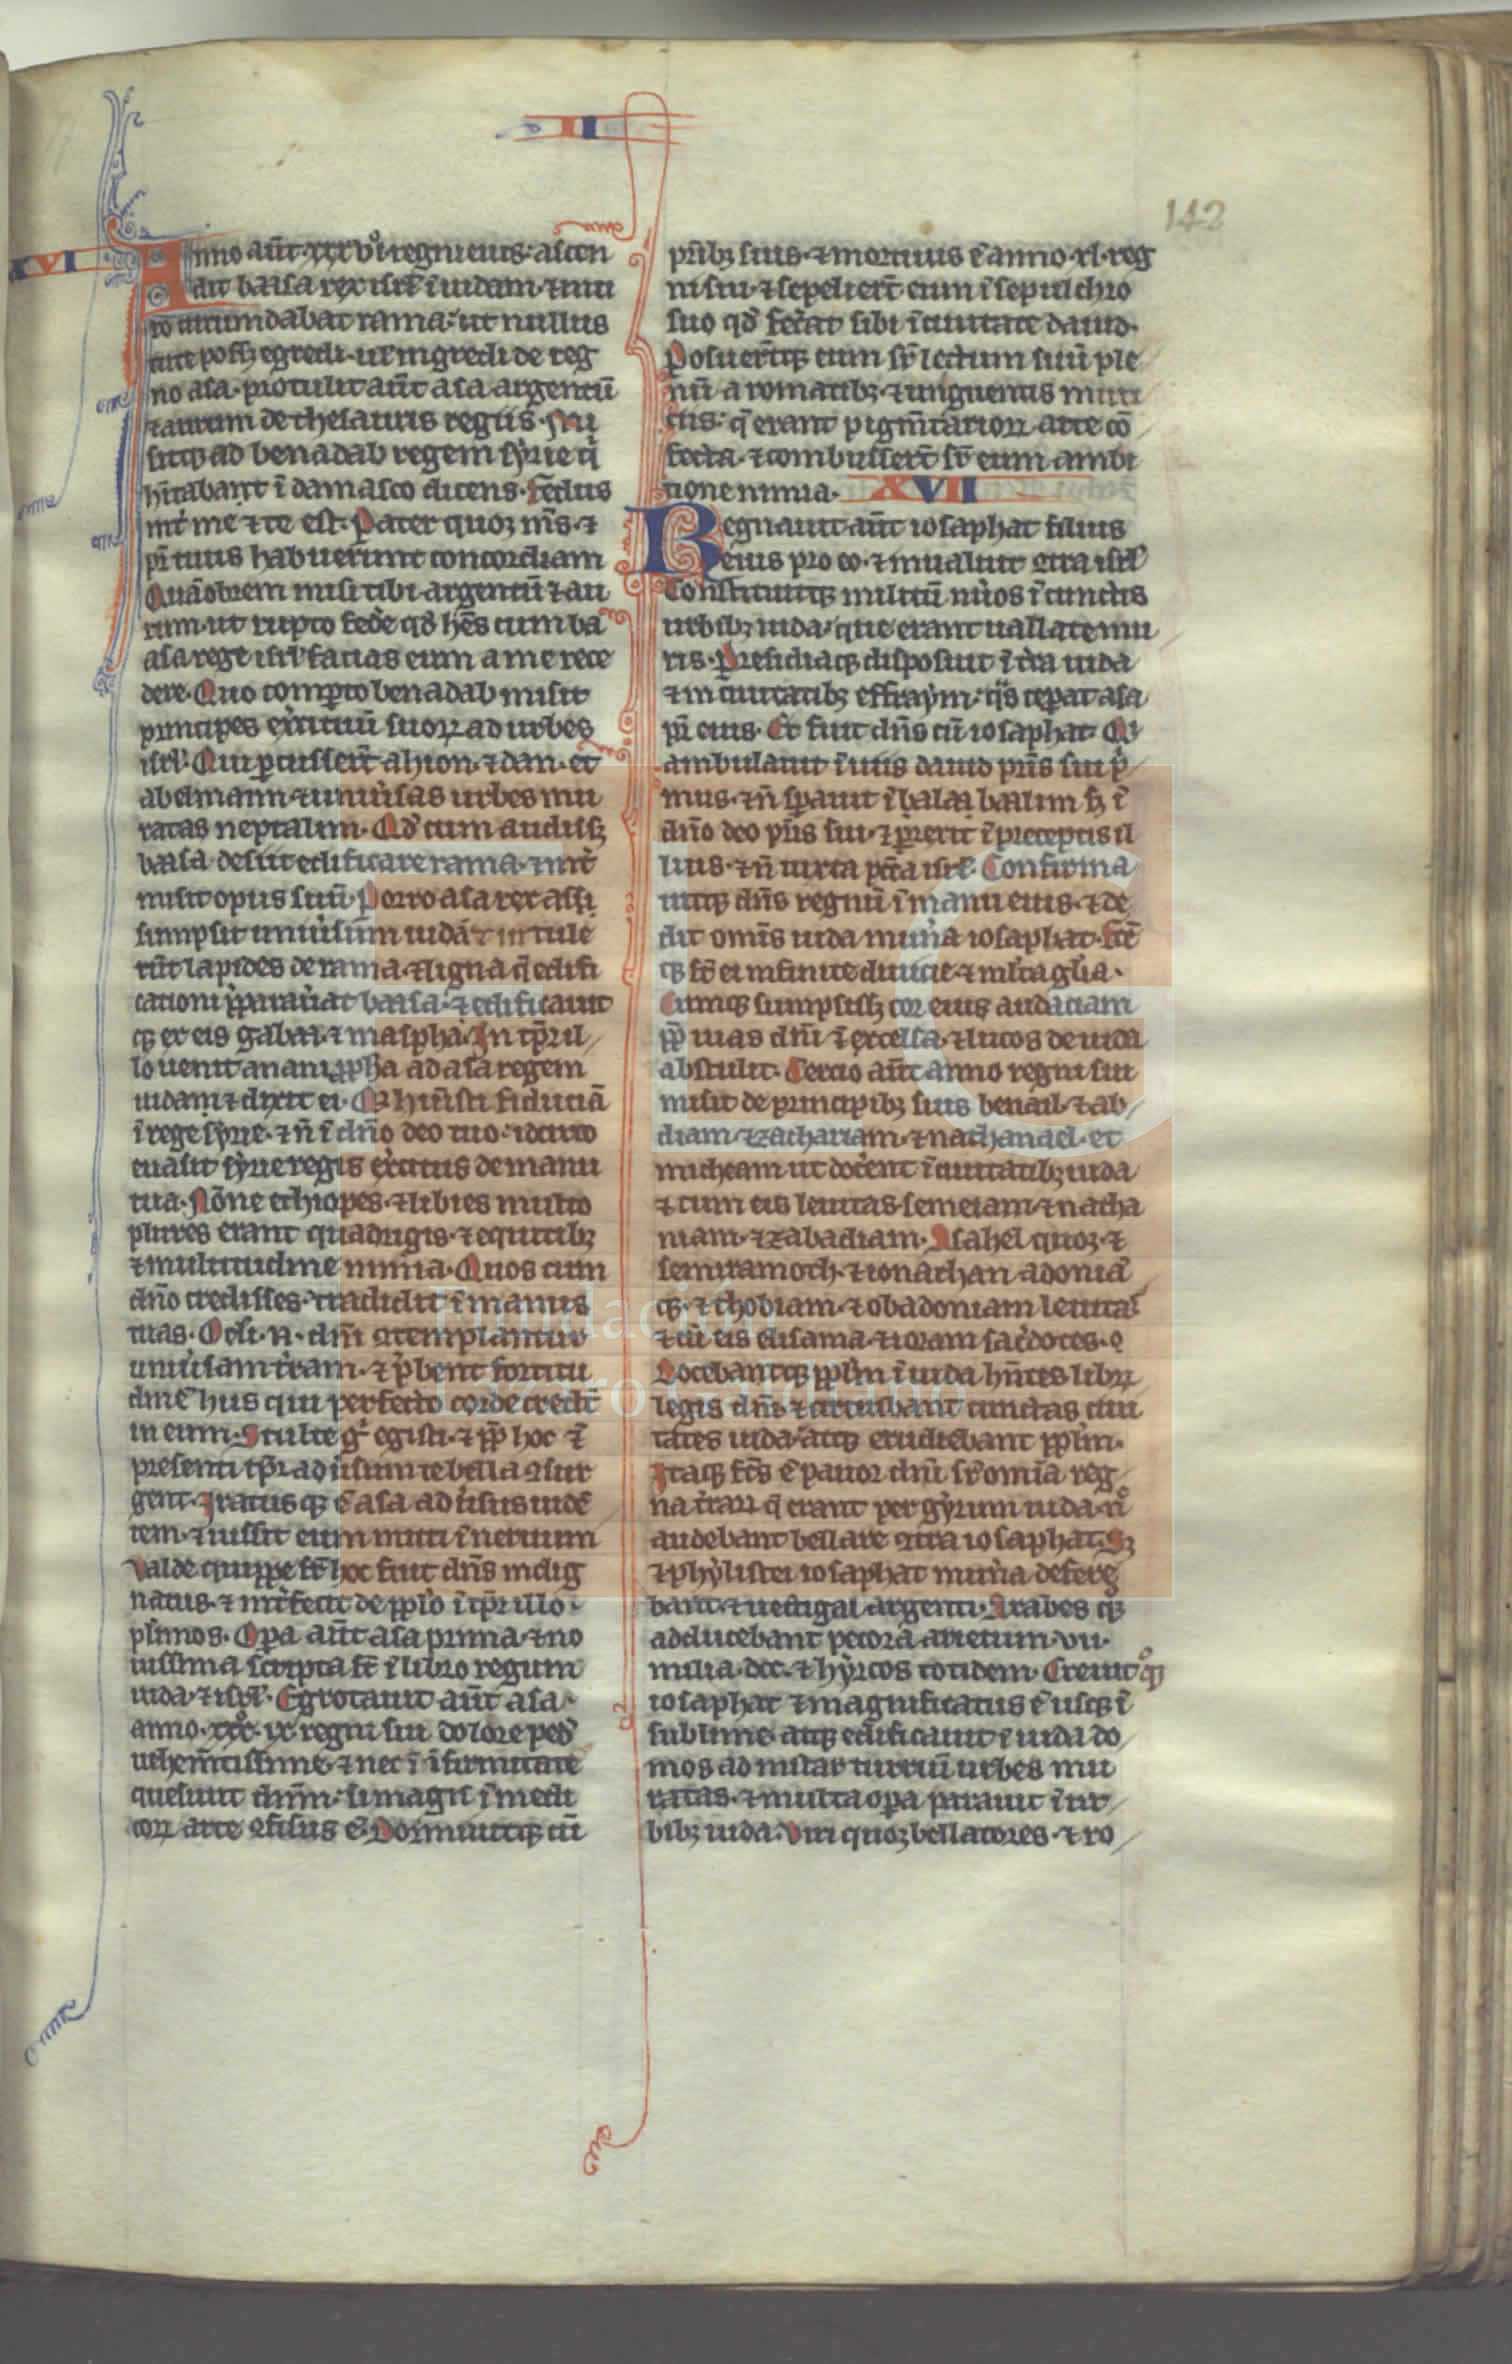 II
142
XVI
Anno aūt xxx vͦi regni eius ascen
dit baasa rex isrł ī iudam ⁊ mu
ro circumdabat rama ut nullus
tute possꝫ egredi uł ingredi de reg
no asa. protulit aūt asa argentū
⁊ aurum de thesauris regiis. mi
sitqꝫ ad benadab regem syrie q̄
hītabant ī damasco dicens. Fedus
int̄ me ⁊ te est. Pater quoqꝫ m̄s ⁊
pr̄ tuus habuerunt concordiam
Quāobrem misi tibi argentū ⁊ au
rum ut rupto fedē qd̄ hēs cum ba
asa rege isrł facias eum a me rece
dere. Quo comꝑto benadab misit
principes exˀcituū suoꝝ ad urbes
isrł. Qui ꝑcusserūt ahion ⁊ dan et
abelmaim ⁊ uniuˀsas urbes mu
ratas neptalim. Qd̄ cum audissꝫ
baasa desiit edificare rama ⁊ int̄
misit opus suū. Porro asa rex assū
sumpsit uniuˀsum iudā ⁊ tule
rūt lapides de rama ⁊ ligna q̄ edifi
cationi p̄parauˀat baasa ⁊ edificauit
qꝫ ex eis gabaa ⁊ maspha. In tp̄r il
lo uenit anani ppħa ad asa regem
iudam ⁊ dixit ei. Qͥ hūisti fiduciā
ī rege syrie ⁊ n̄ ī dn̄o deo tuo idcirco
euasit syrie regis exˀcitus de manu
tua. Nōne ethiopes ⁊ libies multo
plures erant quadrigis ⁊ equitibꝫ
⁊ multitudine nimia. Quos cum
dn̄o credisses tradidit ī manus
tuas. Ocłi .n. dn̄i ꝯtemplantur
uniuˀsam trˀam ⁊ p̄bent fortitu
dinē hiis qui perfecto corde credūt
in eum. Stulte gͦ egisti ⁊ ꝓp̄ hoc ⁊
presenti tp̄r aduˀsum te bella ꝯsur
gent. Iratusqꝫ ē asa aduˀsus uidē
tem ⁊ iussit eum mitti ī neruum
Valde quippe sr̄ hoc fuit dn̄s indig
natus ⁊ intˀfecit de ppło ī tp̄r illo
pł̄imos. Opa aūt asa prima ⁊ no
uissima scripta sūt ī libro regum
iuda ⁊ isrł. Egrotauit aūt asa
anno xxxͦ ix regni sui dolore pedū
uehem̄tissime ⁊ nec ī īfirmitate
quesiuit dn̄m s; magis ī medi
coꝝ arte ꝯfisus ē. Dormiuitqꝫ cū
pr̄ibꝫ suis ⁊ mortuus ē anno xl reg
ni sui ⁊ sepelierūt eum ī sepulchro
suo qd̄ fecˀat sibi ī ciuitate dauid.
Posuerūtqꝫ eum sr̄ lectum suū ple
nū aromatibꝫ ⁊ unguentis mere
ciis q̄ erant pigm̄tarioꝝ arte cō
fecta ⁊ combusserūt sr̄ eum ambi
tione nimia. XVII
Regnauit aūt iosaphat filius
eius pro eo ⁊ inualuit ꝯtra isrł
Constituitqꝫ militū nūos ī cunctis
urbibꝫ iuda que erant uallate mu
ris. Presidiaqꝫ disposuit ī trˀa iuda
⁊ in ciuitatibꝫ effraym qͣs cepat asa
pr̄ eius. Et fuit dn̄s cū iosaphat qͥ
ambulauit ī uiis dauid pr̄is sui pͥ
mus ⁊ n̄ spauit ī baalim sꝫ ī
dn̄o deo pr̄is sui ⁊ ꝑrexit ī preceptis il
lius ⁊ n̄ iuxta pccˀa isrł. Confirma
uitqꝫ dn̄s regnū ī manu eius ⁊ de
dit omīs iuda munˀa iosaphat. Fcē
qꝫ st̄ ei infinite diuicie ⁊ multˀa głia.
Cumqꝫ sumpsissꝫ cor eius audaciam
ꝓp̄ uias dn̄i ⁊ excelsa ⁊ lucos de iuda
abstulit. Tercio aūt anno regni sui
misit de principibꝫ suis benail ⁊ ab
diam ⁊ zachariam ⁊ nathanael et
micheam ut docˀent ī ciuitatibꝫ iuda
⁊ cum eis leuitas semeiam ⁊ natha
niam ⁊ zabadiam. Asahel quoqꝫ ⁊
semiramoth ⁊ ionathan adoniā
qꝫ ⁊ thobiam ⁊ obadoniam leuitas
⁊ cū eis elisama ⁊ ioram sacˀdotes.
Docebantqꝫ ppłm ī iuda hn̄tes libꝝ
legis dn̄i ⁊ circuibant cunctas ciui
tates iuda atqꝫ erudiebant ppłm.
Itaqꝫ fcˀs ē pauor dn̄i sr̄ omīa reg
na trˀaꝝ q̄ erant per gyrum iuda nͦ
audebant bellare ꝯtra iosaphat. Sꝫ
⁊ phylistei iosaphat munˀa defere
bant ⁊ uectigal argenti. Arabes qꝫ
adducebant pecora arietum vii
milia dcc ⁊ hyrcos totidem. Creuit gͦ
iosaphat ⁊ magnificatus ē usqꝫ ī
sublime atqꝫ edificauit ī iuda do
mos ad instar turriū urbes mu
ratas ⁊ multa opa parauit ī ur
bibꝫ iuda. Viri quoqꝫ bellatores ⁊ ro
Fundación
Lázaro Galdiano